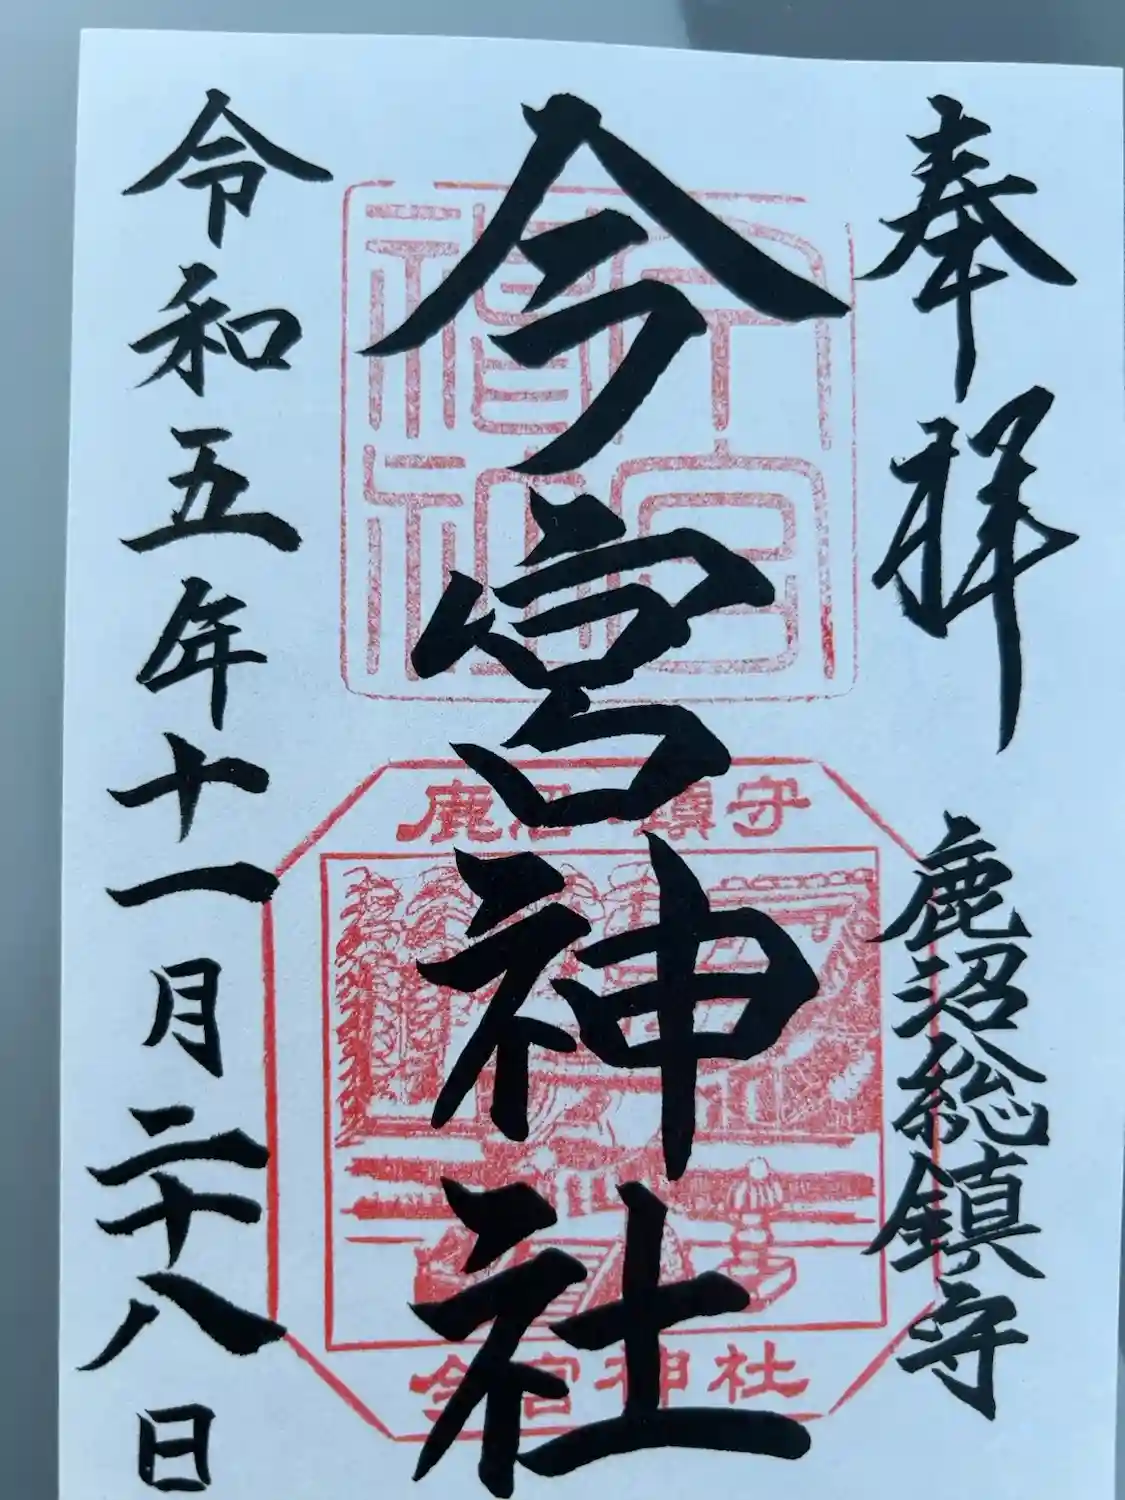 奉拝
鹿沼総鎮守
今宮神社
今宮神社
鹿沼 鎮守
今宮神社
令和五年十一月二十八日